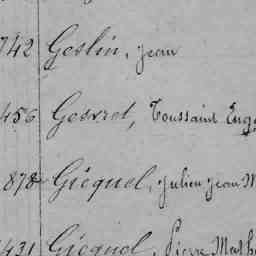 742 Geslin, Jean
456 Gesvret, Toussaint
878 Gicquel, Julien Jean M
431 Gicquel, Pierre Math